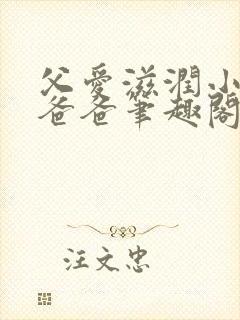 父愛滋潤小
爸爸筆趣閣
汪文忠